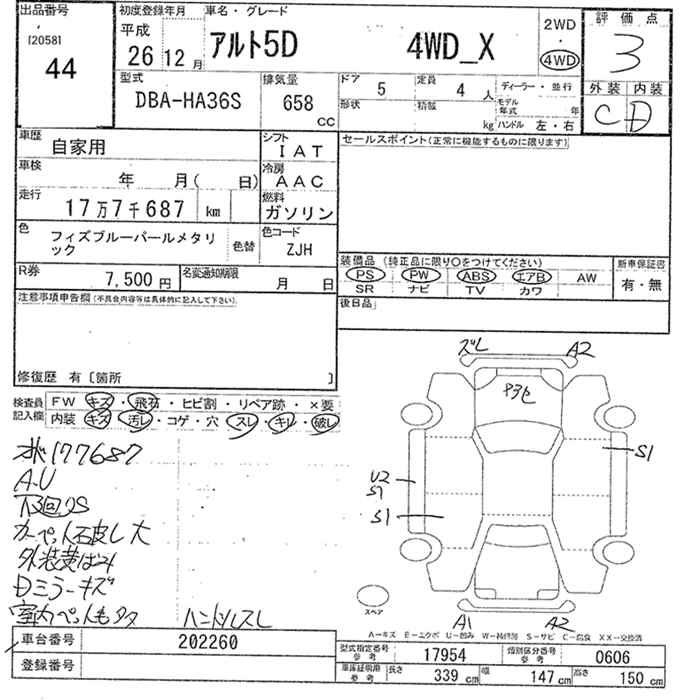 出品番号
[2058]
44
初度登録年月
平成
26 12 月
車名・グレード
アルト5D 4WD_X
2WD
・
4WD
評価点
3
外装 内装
C D
型式
DBA-HA36S
排気量
658
cc
ドア
5
定員
4 人
形状
積載
kg
ディーラー・並行
モデル年式
年
ハンドル 左・右
車歴
自家用
シフト
IAT
セールスポイント(正常に機能するものに限ります)
車検
年 月( 日)
冷房
AAC
走行
17万7千687 km
燃料
ガソリン
色
フィズブルーパールメタリ
ック
色替
色コード
ZJH
装備品 (純正品に限り○をつけてください)
PS PW ABS エアB AW
SR ナビ TV カワ
新車保証書
有・無
R券
7,500 円
名変通知期限
月 日
後日品
注意事項申告欄(不具合内容等は具体的に記入して下さい)
修復歴 有 [箇所 ]
検査員
記入欄
FW キズ・飛石・ヒビ割・リペア跡・×要
内装 キズ・汚レ・コゲ・穴・スレ・キレ・破レ
177687
A.U
下回りS
カーペット石皮し大
外装黄ばみ
Dミラーキズ
室内ペットもタタ
ハンドルスレ
ズレ
A2
S1
U2
S1
S1
A1
A2
スペア
A-キズ E-エクボ U-凹み W-補修跡 S-サビ C-腐食 XX-交換済
車台番号
202260
登録番号
型式指定番号
参考
17954
類別区分番号
参考
0606
車庫証明用
参考
長さ
339 cm
幅
147 cm
高さ
150 cm